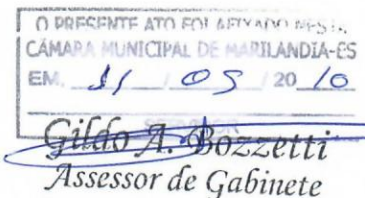 O PRESENTE ATO FOI AFIXADO NESTA
CÂMARA MUNICIPAL DE MARILANDIA-ES
EM, 11 / 05 / 20 10
Gildo A. Bozzetti
Assessor de Gabinete